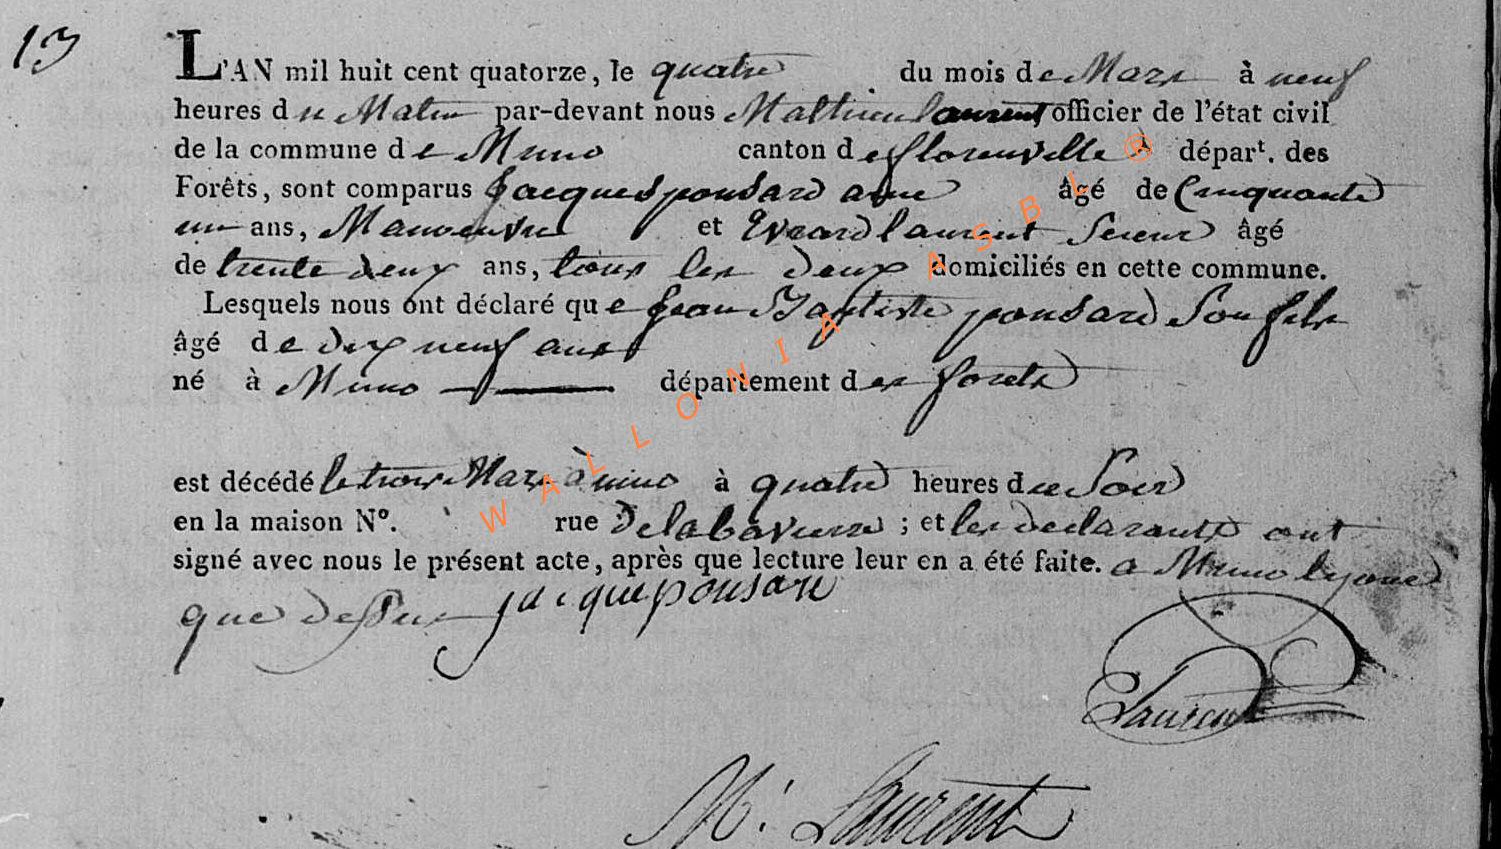 13
L'AN mil huit cent quatorze, le quatre du mois de Mars à neuf
heures du Matin par-devant nous Mathieu laurent officier de l'état civil
de la commune de Muno canton de florenville départ. des
Forêts, sont comparus Jacques ponsard âgé de Cinquante
un ans, Manoeuvre et Evrard laurent Scieur âgé
de trente deux ans, tous les deux domiciliés en cette commune.
Lesquels nous ont déclaré que Jean Baptiste ponsard Son fils
âgé de dix neuf ans
né à Muno département des forets
est décédé le trois Mars à muno à quatre heures du Soir
en la maison N°. rue De la baviere ; et les declarants ont
signé avec nous le présent acte, après que lecture leur en a été faite. a Muno
que dessus jacque ponsard
Laurent
M. Laurent
WALLONIA ASBL ®